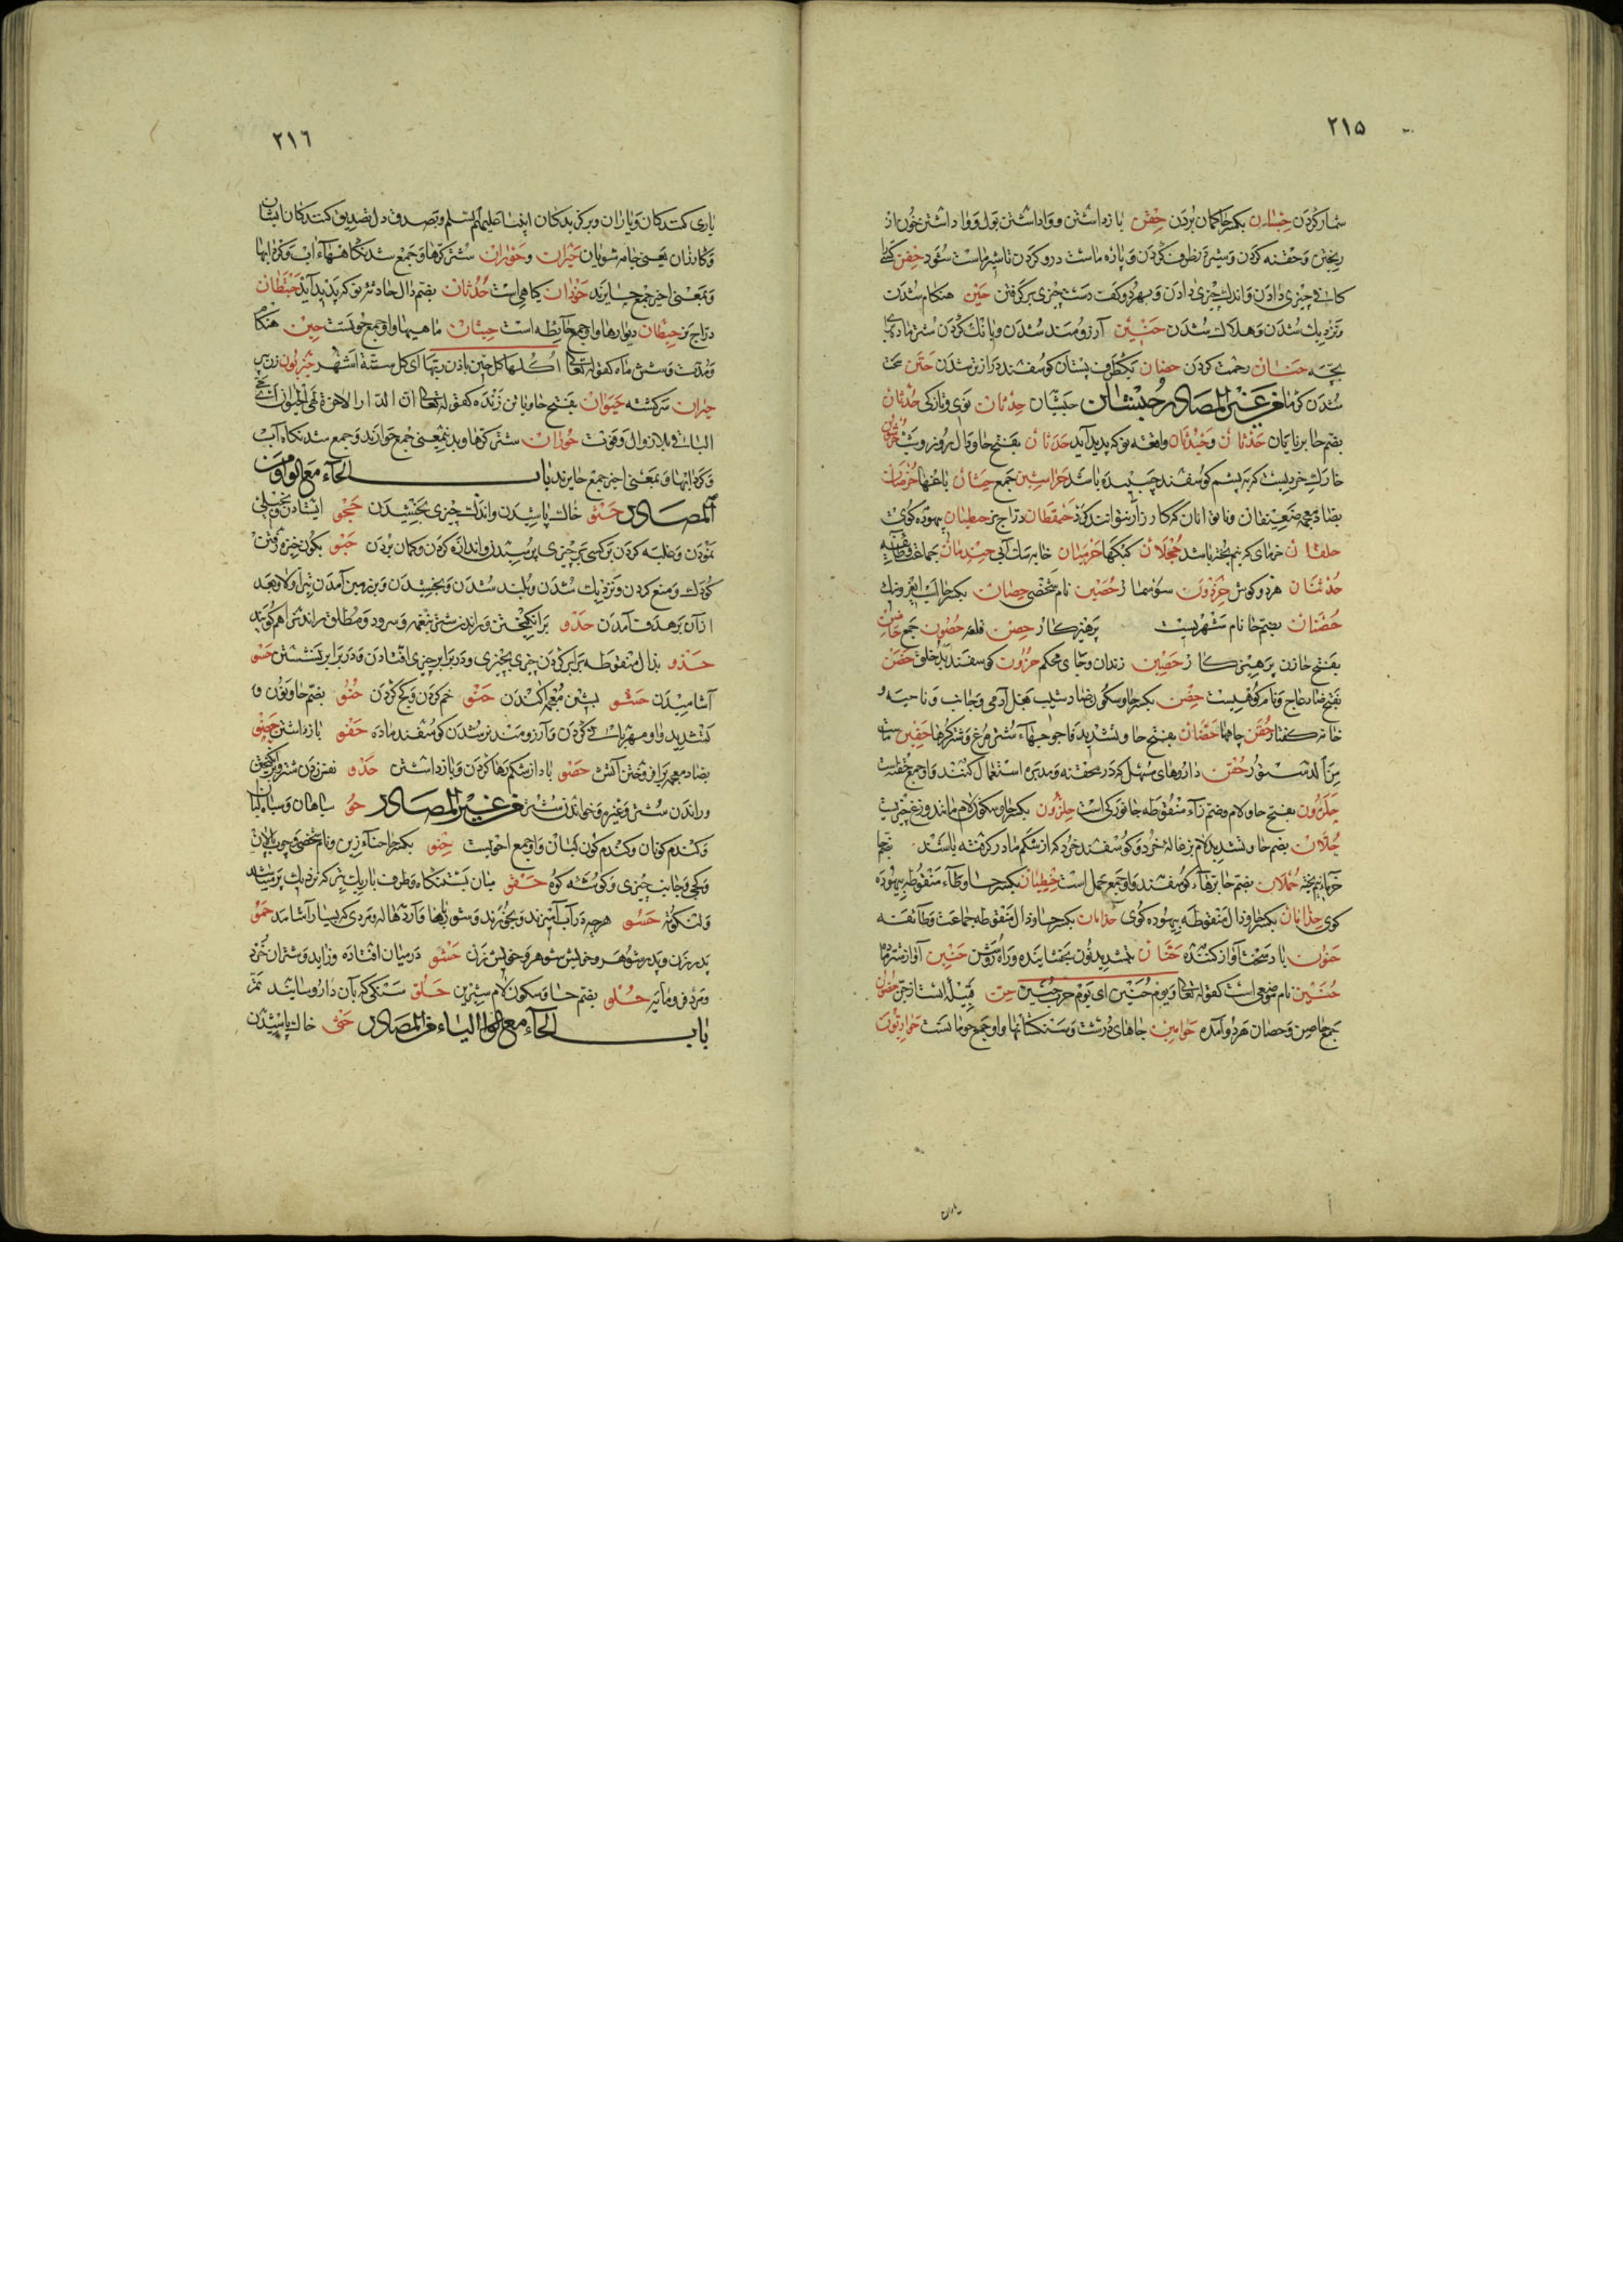 ٢١٥
شمار کردن حسبان بکسر حا کمان بردن حقن باز داشتن و واداشتن بول و وا داشتن خون از
ریختن و حقنه کردن و شیر در ظرف کردن و پاره ماست درو کردن تا شیر ماست شود حفن
کسی چیزی دادن و اندک چیزی دادن و بهر دو کف دست چیزی بر کرفتن حین هنکام شدن
و نزدیک شدن و هلاک شدن حنین آرزومند شدن و بانک کردن شتر ماده
بچه حنان رحمت کردن حضان یکطرف پستان کوسفند دراز تر شدن حتن سخت
شدن کرما من غیر المصادر حبشان حبشیان حدثان نوی و تازکی حدثان
بضم حا برنایان حدثان و حیدثان واقعه نو که پدید آید حدثان بفتح حا و دال روز و شب
خارکیست که به پشم کوسفند چسپیده باشد حراسین جمع حشان باغها حرضان
بضاد معجمه ضعیفان و ناتوانان که کارزار نتوانند کرد حمقطان دراج نر حطیان بیهوده کوی
حلقان خرمای که نیم پخته باشد حجلان کبکها حرمیان خایه سک آبی حیدمان جماعت و طایفه
حذنتان هر دو کوش حرذون سوسمار حصین نام شخصی حصان بکسر حا اسب
حضنان بضم حا نام شهریست پرهیزکار حصن قلعه حصون جمع حاصن
بفتح حا زن پرهیزکار حصین زندان و جای محکم حزون کوسفند بد خلق حضن
بفتح ضاد عاج و نام کوهیست حضن بکسر حا و سکون ضاد شیب بغل آدمی و جانب و ناحیه و
خانه کفتار حقن چاهها حفان بفتح حا و تشدید فا جوجهاء شتر مرغ و شتر کرها حقین
حقن داروهای سهل که در حقنه و مدبره استعمال کنند و او جمع حقنه است
حلزون بفتح حا و لام و ضم زاء منقوطه جانورکی است حلزون بکسر حا و سکون لام مانند وزغ چیزیست
حلان بضم حا و تشدید لام بزغاله خرد و کوسفند خرد که از شکم مادر کرفته باشند
خرمای نیم پخته حملان بضم حا برهاء کوسفند و او جمع حمل است حنظیان بکسر حا و ظاء منقوطه بیهوده
کوی حذامان بکسر حا و ذال منقوطه بیهوده کوی حذامان بکسر حا و ذال منقوطه جماعت و طائفه
حنون باد سخت آواز کننده حنان بتشدید نون بخشاینده و راه روشن حنین آواز شتر ماده
حنین نام موضعی است کقوله تعالی و یوم حنین ای یوم حرب حنین حن قبیله ایست از جن
جمع حاصن و حصان هر دو آمده حوامین جاهای درشت و سنکستانها و او جمع حومانست حواریون
یاری
٢١٦
یاری کنندکان و یاران و برکزیدکان انبیا علیهم السلم و بصدق دل تصدیق کنندکان ایشان
و کازران یعنی جامه شویان حیران و حوران شتر کرها و جمع شدنکاهاء آب و کردابها
و بمعنی اخیر جمع حایرند حوذان کیاهی است حدثان بضم دال حادثه نو که پدید آید حبقطان
دراج نر حیطان دیوارها و او جمع حائطه است حیتان ماهیها و او جمع حوتست حین هنکام
و مدت و شش ماه کقوله تعالی اکلها کل حین باذن ربها ای کل ستة اشهر حیزبون زن پیر
حیران سرکشته حیوان بفتح حا و یا تن زنده کقوله تعالی ان الدار الاخرة لهی الحیوان
الباقی بلا زوال و موت حوران شتر کرها و بدین معنی جمع حوارند و جمع شدنکاه آب
و کردابها و بمعنی اخیر جمع حایرند باب الحاء مع الواو من
المصادر حثو خاک پاشیدن و اندک چیزی بخشیدن حجو ایستادن و بخیلی
نمودن و غلبه کردن بر کسی بر چیزی پرسیدن و اندازه کردن و کمان بردن حبو بکون خیزه رفتن
کودک و منع کردن و نزدیک شدن و بلند شدن و بخشیدن و بزمین آمدن تیر اولا و بعد
از آن بر هدف آمدن حدو برانکیختن و راندن شتر بنغمه و سرود و مطلق راندن را هم کویند
حذو بذال منقوطه برابر کردن چیزی بچیزی و در برابر چیزی افتادن و در برابر نشستن حسو
آشامیدن حشو بشین معجمه اکندن حنو خم کردن و کج کردن حنو بضم حا و نون و
تشدید واو مهربانی کردن و آرزومند نر شدن کوسفند ماده حفو باز داشتن حضو
بضاد معجمه برافروختن آتش حصو باد از شکم رها کردن و باز داشتن حدو نفیر زدن شتر و برانکیختن
و راندن شتر و غیره و خواندن شتر من غیر المصادر حو سیاهان و سیاه لبان
و کندم کونان و کندم کون لبان و او جمع احوی است حنو بکسر حا حناء زین و نام شخصی و چوب پالان
و کجی و جانب چیزی و کوشه کوه حقو میان بستنکاه و طرف باریک تیر که نزدیک پر میباشد
و لنکوته حسو هرچه در آب آمیزند و بخورند و شورباها و آردهاله و مردی که بسیار آشامد حمو
پدر زن و پدر شوهر و خویش شوهر و خویش زن حشو در میان افتاده و زاید و شتران خرد
و مرد فرومایه حلو بضم حا و سکون لام شیرین حلو سنکی که بآن دارو سایند
باب الحاء مع الیاء من المصادر حثی خاک پاشیدن